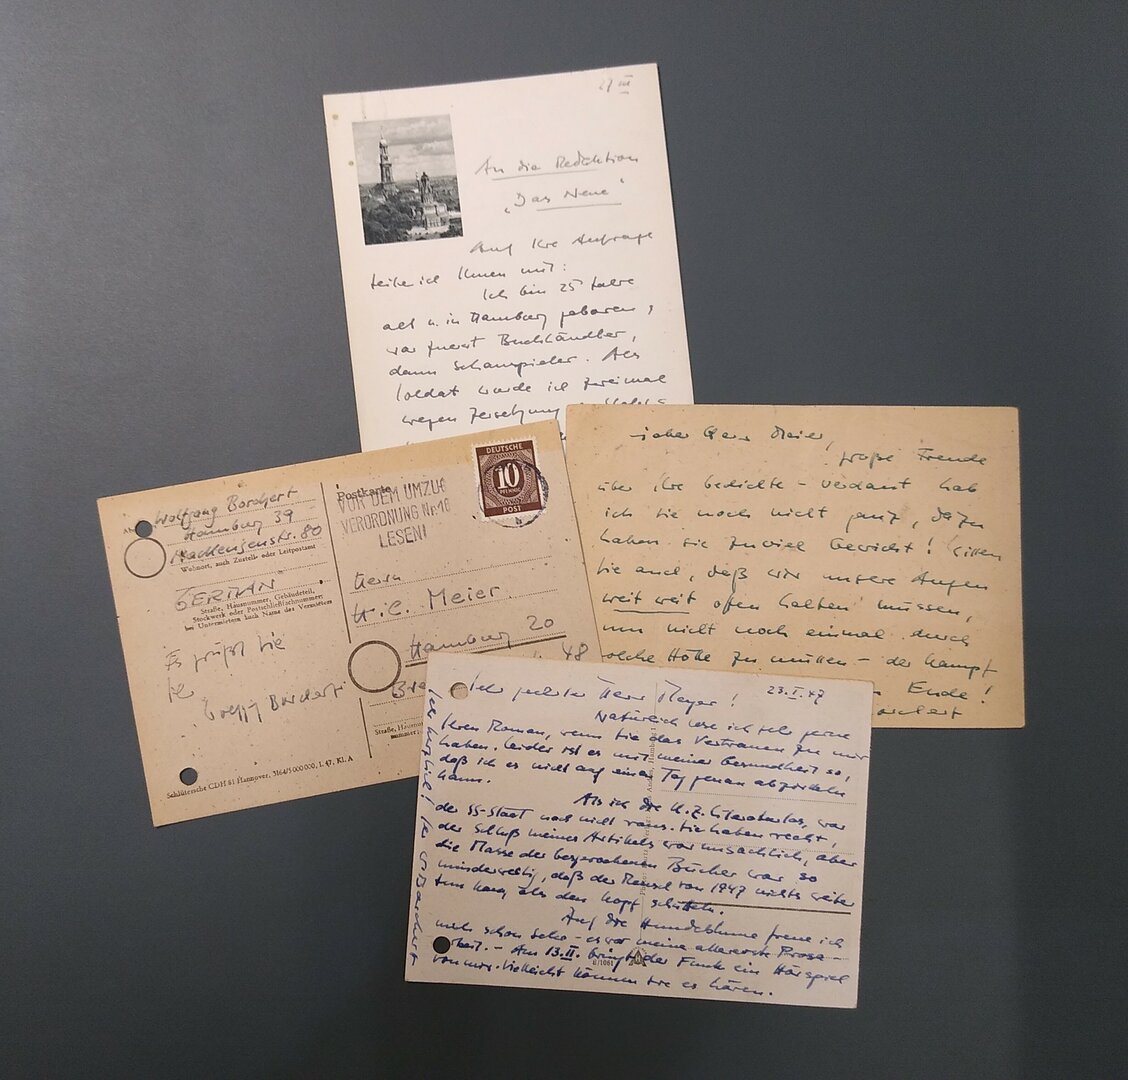 27 III
An die Redaktion
„Das Neue"
Auf Ihre Anfrage
teile ich Ihnen mit:
Ich bin 25 Jahre
alt u. in Hamburg geboren,
war zuerst Buchhändler,
dann Schauspieler. Als
Soldat wurde ich zweimal
wegen Zersetzung
Lieber Herr Meier,
große Freude
über Ihre Gedichte - verdaut hab
ich sie noch nicht ganz, dazu
haben sie zuviel Gewicht! Wissen
Sie auch, daß wir unsere Augen
weit weit offen halten müssen,
um nicht noch einmal durch
solche Hölle zu müssen - der Kampf
Ende!
Borchert
Postkarte
DEUTSCHE
10
PFENNIG
POST
VOR DEM UMZUG
VERORDNUNG Nr. 16
LESEN!
Wolfgang Borchert
Hamburg 39
Mackensenstr. 80
Wohnort, auch Zustell- oder Leitpostamt
GERMAN
Straße, Hausnummer, Gebäudeteil,
Stockwerk oder Postschließfachnummer;
bei Untermietern auch Name des Vermieters
Es grüßt Sie
Ihr
Wolfg Borchert
Herrn
H. C. Meier
Hamburg 20
48
Schlütersche CDH 81 Hannover, 3164/5 000 000, 1. 47. Kl. A
23.I.47
Sehr geehrter Herr Meyer!
Natürlich lese ich sehr gerne
Ihren Roman, wenn Sie das Vertrauen zu mir
haben. Leider ist es mit meiner Gesundheit so,
daß ich es nicht auf einen Tag genau abzirkeln
kann.
Als ich die K.Z. Literatur las, war
der SS-Staat noch nicht raus. Sie haben recht,
der Schluß meines Artikels war unsachlich, aber
die Masse der besprochenen Bücher war so
minderwertig, daß der Mensch von 1947 nichts weiter
tun kann als den Kopf schütteln.
Auf die Hundeblume freue ich
mich schon sehr - es war meine allererste Prosa-
arbeit. - Am 13.II. bringt der Funk ein Hörspiel
von mir. Vielleicht können Sie es hören.
Sehr herzlich! Ihr W Borchert